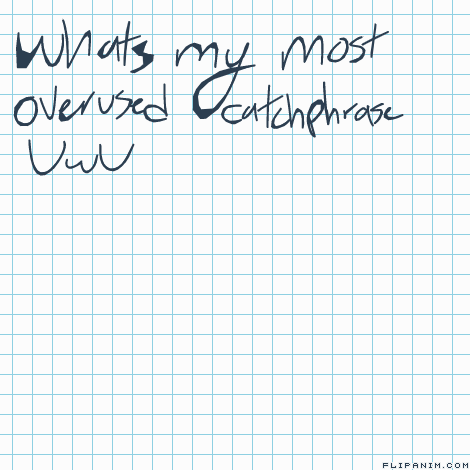 Whats my most
overused catchphrase
UwU
FLIPANIM.COM